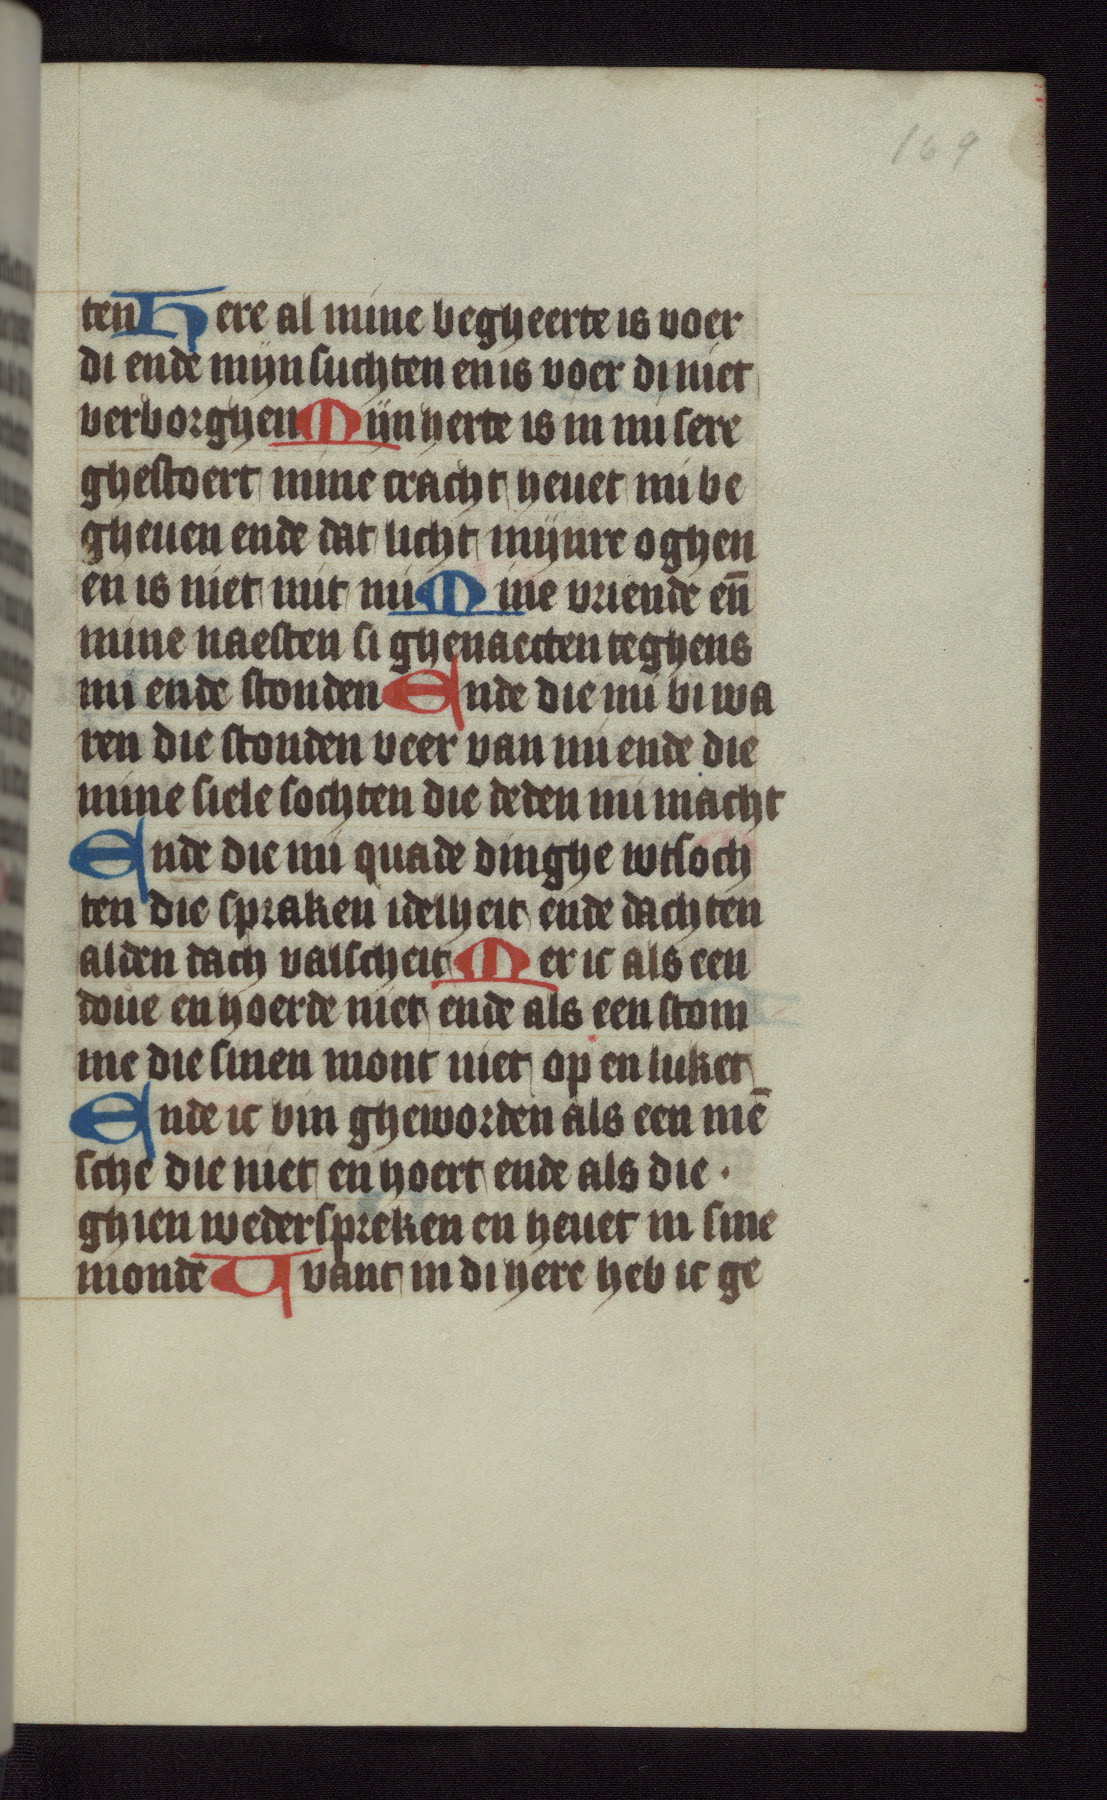 169
ten Here al mine begheerte is voer
di ende mijn suchten en is voer di niet
verborghen Mijn herte is in mi sere
ghestoert mine cracht heuet mi be
gheuen ende dat licht mijnre oghen
en is niet mit mi Mine vriende en̄
mine naesten si ghenaecten teghens
mi ende stonden Ende die mi bi wa
ren die stonden veer van mi ende die
mine siele sochten die deden mi macht
Ende die mi quade dinghe wtsoch
ten die spraken idelheit ende dachten
alden dach valscheit Mer ic als een
doue en hoerde niet ende als een stom
me die sinen mont niet op en luket
Ende ic bin gheworden als een mē
sche die niet en hoert ende als die ·
ghien wederspreken en heuet in sine
monde Want in di here heb ic ge